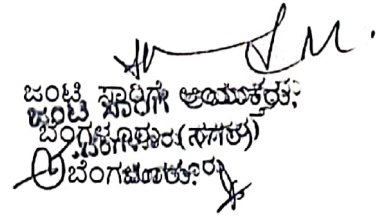 ಜಂಟಿ ಸಾರಿಗೆ ಆಯುಕ್ತರು,
ಬೆಂಗಳೂರು (ನಗರ)
ಬೆಂಗಳೂರು.